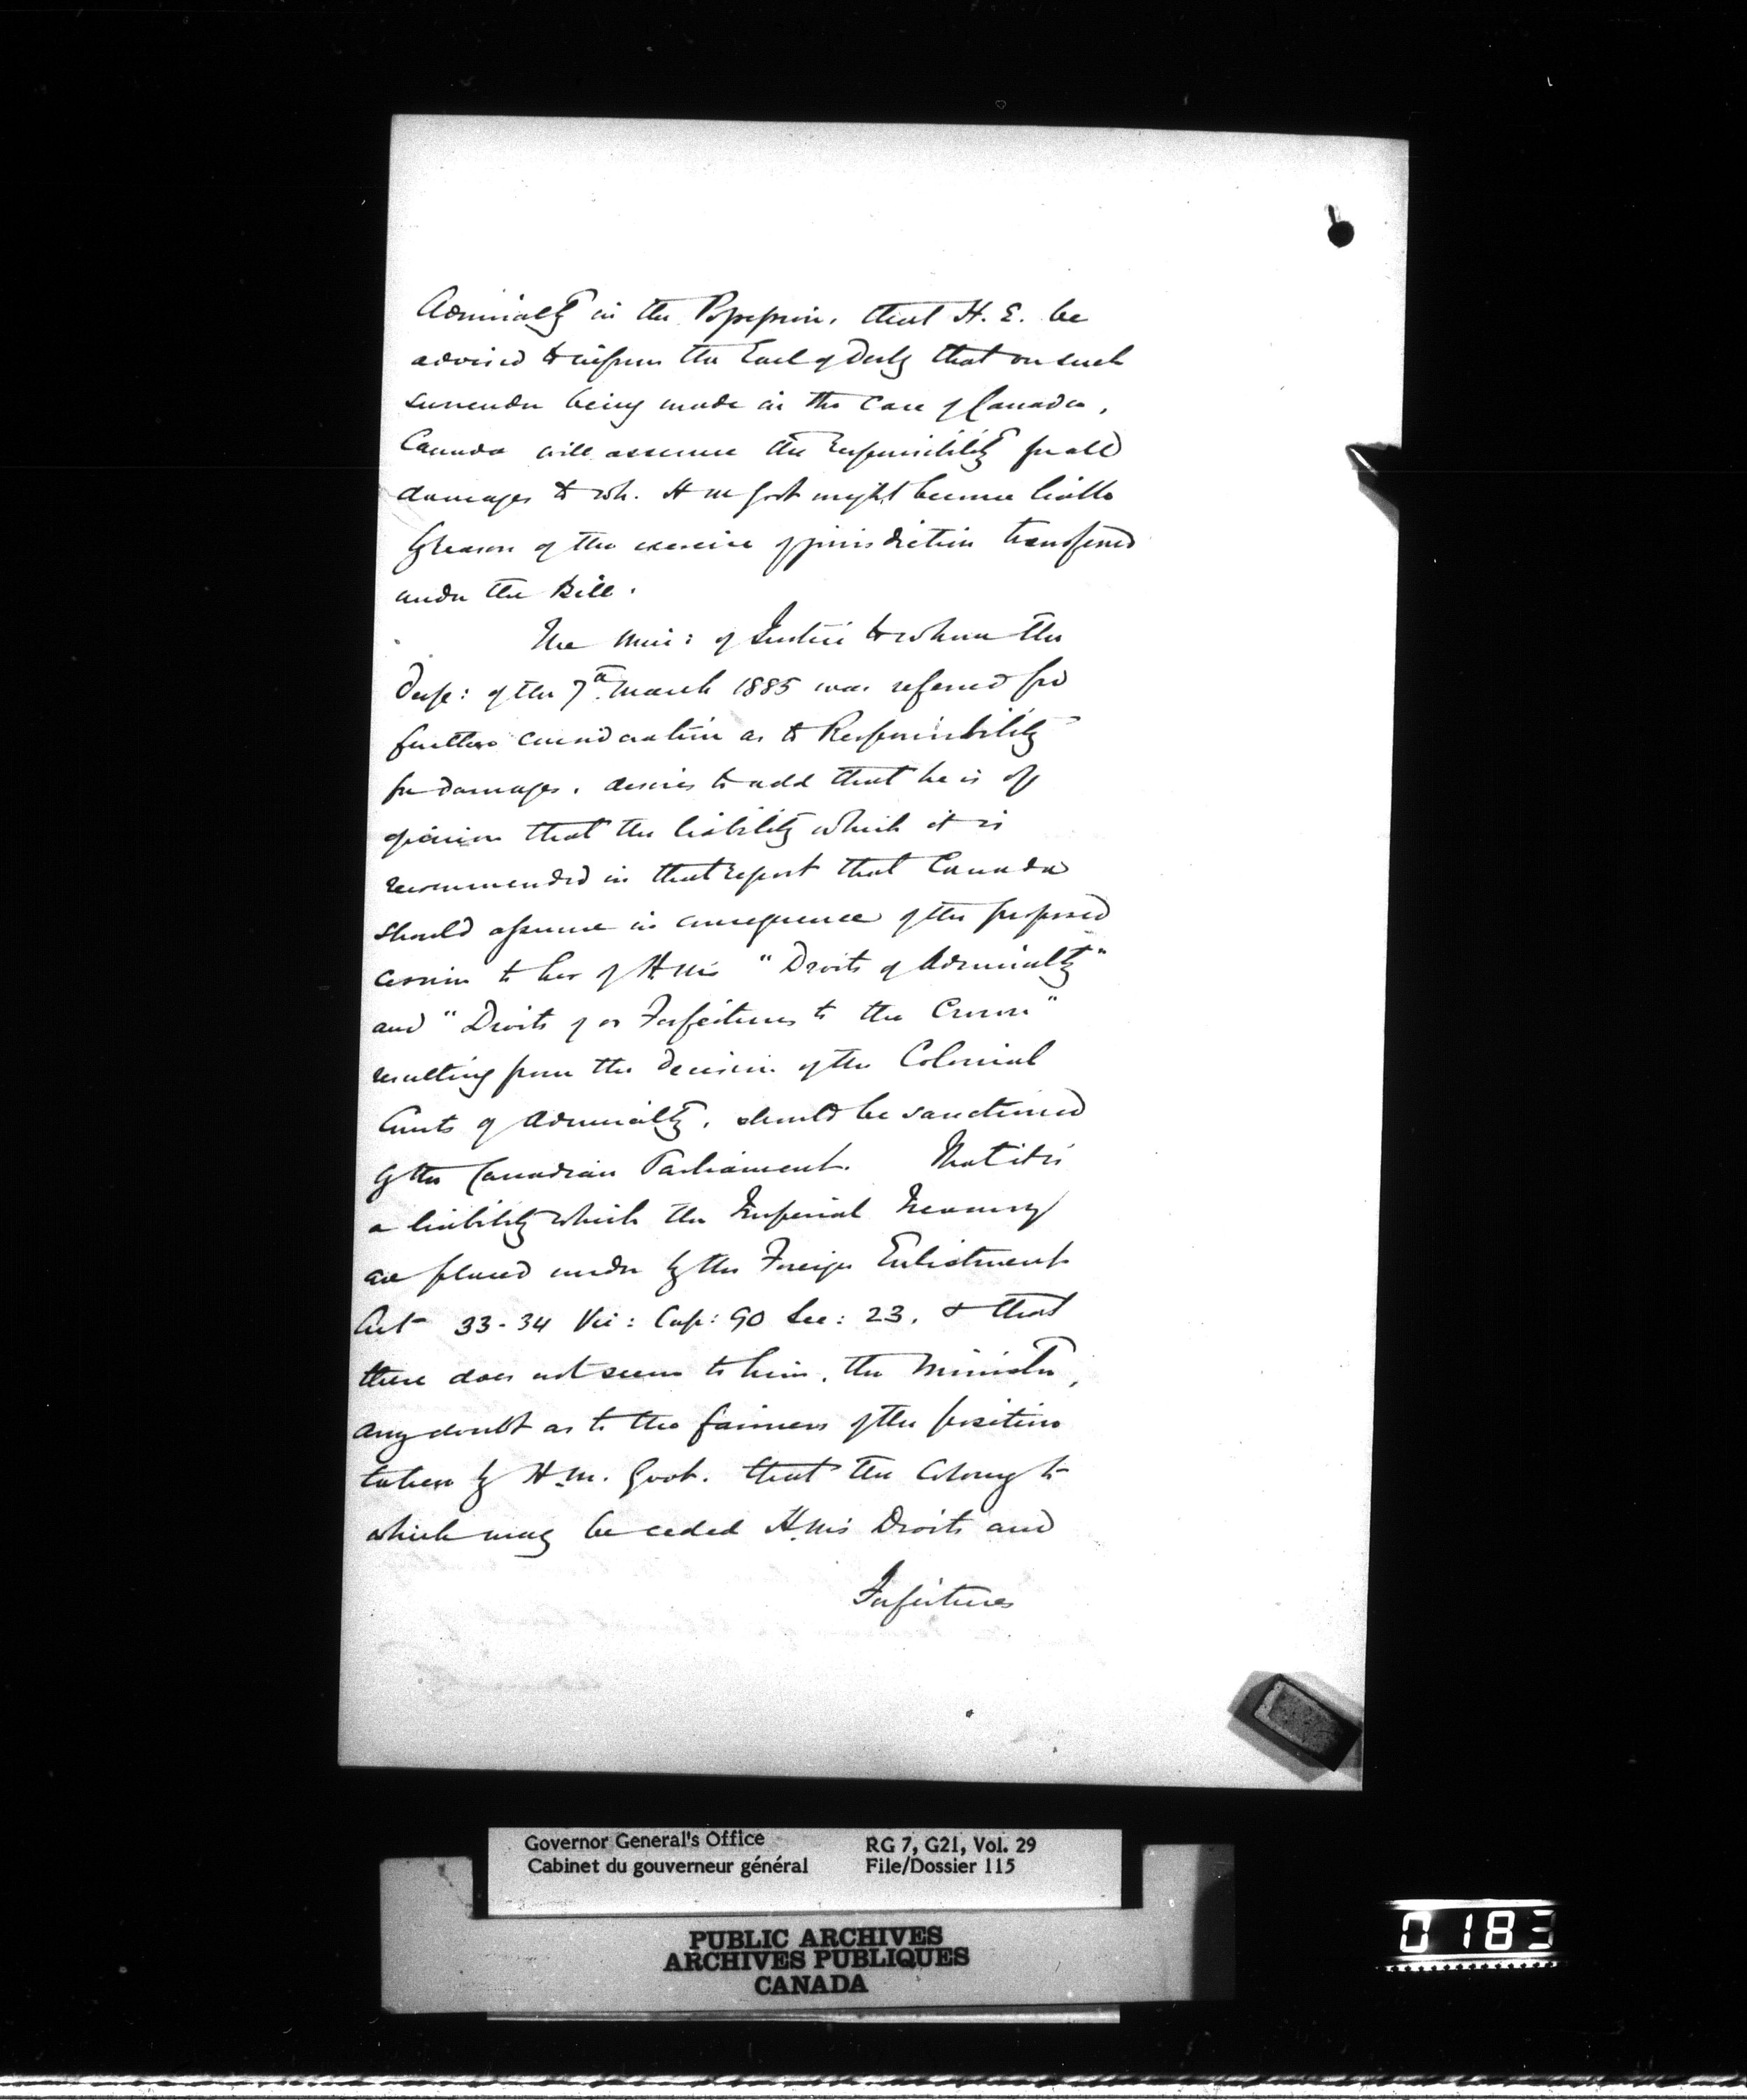 Admiralty in the Possession, that H. E. be
advised to inform the Earl of Derby that on such
surrender being made in the case of Canada,
Canada will assume the responsibility for all
damages to wh. H M Govt might become liable
by reason of the exercise of jurisdiction transferred
under the Bill.
The Min: of Justice to whom the
Desp: of the 7th March 1885 was referred for
further consideration as to Responsibility
for damages, desires to add that he is of
opinion that the liability which it is
recommended in that report that Canada
should assume in consequence of the proposed
cession to her of H M's "Droits of Admiralty"
and "Droits of or Forfeitures to the Crown"
resulting from the decision of the Colonial
Courts of Admiralty, should be sanctioned
by the Canadian Parliament. That it is
a liability which the Imperial Treasury
are placed under by the Foreign Enlistment
Act 33-34 Vic: Cap: 90 Sec: 23, & that
there does not seem to him, the Minister,
any doubt as to the fairness of the position
taken by H.M. Govt. that the Colony to
which may be ceded H.M's Droits and
Forfeitures
Governor General's Office RG 7, G21, Vol. 29
Cabinet du gouverneur général File/Dossier 115
PUBLIC ARCHIVES
ARCHIVES PUBLIQUES
CANADA
0183